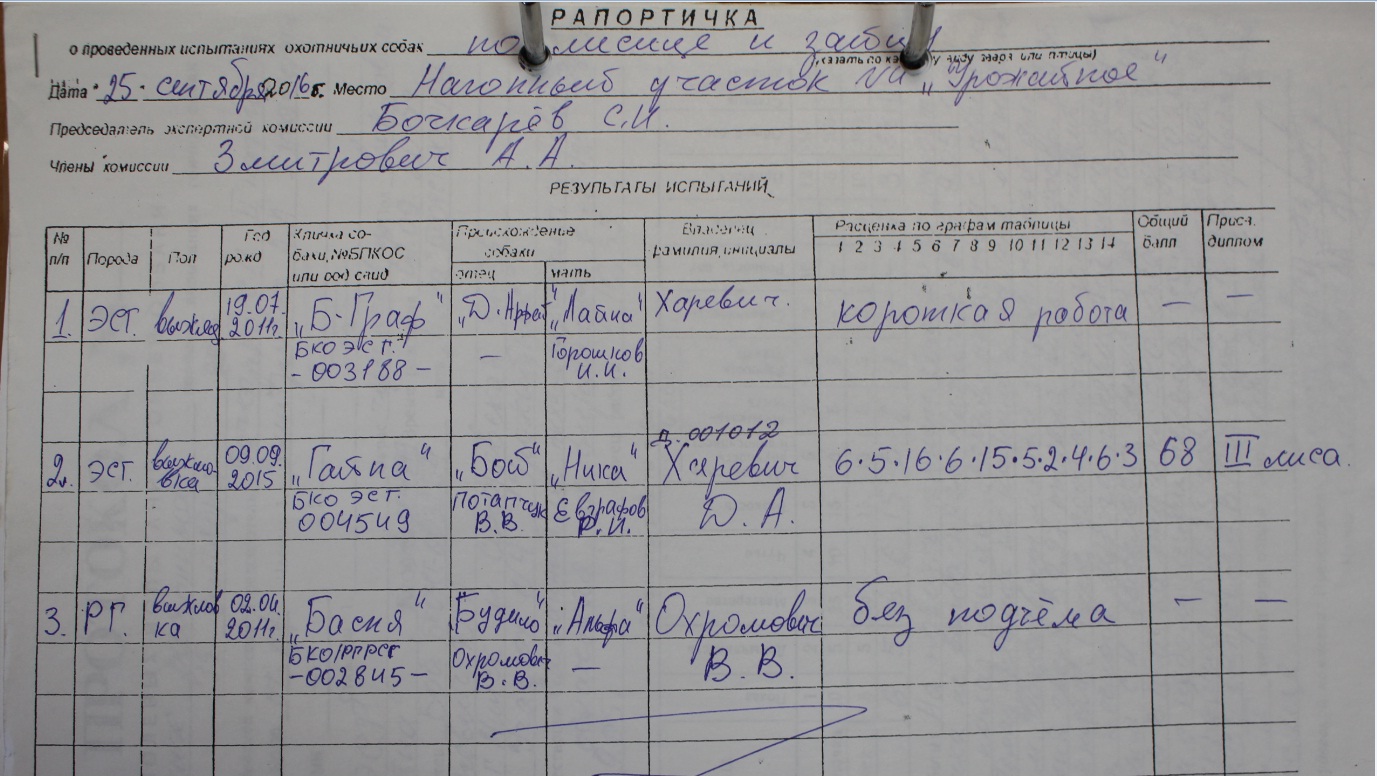 РАПОРТИЧКА
о проведенных испытаниях охотничьих собак по лисице и зайцу
(указать по какому виду зверя или птицы)
Дата 25 сентября 2016 г. Место Нагонный участок "Урожайное"
Председатель экспертной комиссии Бочкарёв С.И.
Члены комиссии Змитрович А.А.
РЕЗУЛЬТАТЫ ИСПЫТАНИЙ
№ п/п Порода Пол Год рожд Кличка собаки, №БПКОС или род свид Происхождение собаки отец мать Владелец фамилия, инициалы Расценка по графам таблицы 1 2 3 4 5 6 7 8 9 10 11 12 13 14 Общий балл Присв. диплом
1. ЭСТ. выжлец 19.07. 2011г. „Б-Граф" „Д. "Лайна" Харевич. короткая работа — —
БКО ЭСТ. -003188- — Горошков И.И.
д. 001012
2. ЭСТ. выжловка 09.09. 2015 „Гайна" „Боб" „Ника" Харевич 6·5·16·6·15·5·2·4·6·3 68 III лиса.
БКО ЭСТ. 004549 Потапчук В.В. Евграфов Р.И. Д.А.
3. РГ. выжловка 02.04. 2011г. „Басня" Будило" „Альфа" Охромович без подъёма — —
БКО/РПРСГ -002845- Охромович В.В. — В.В.